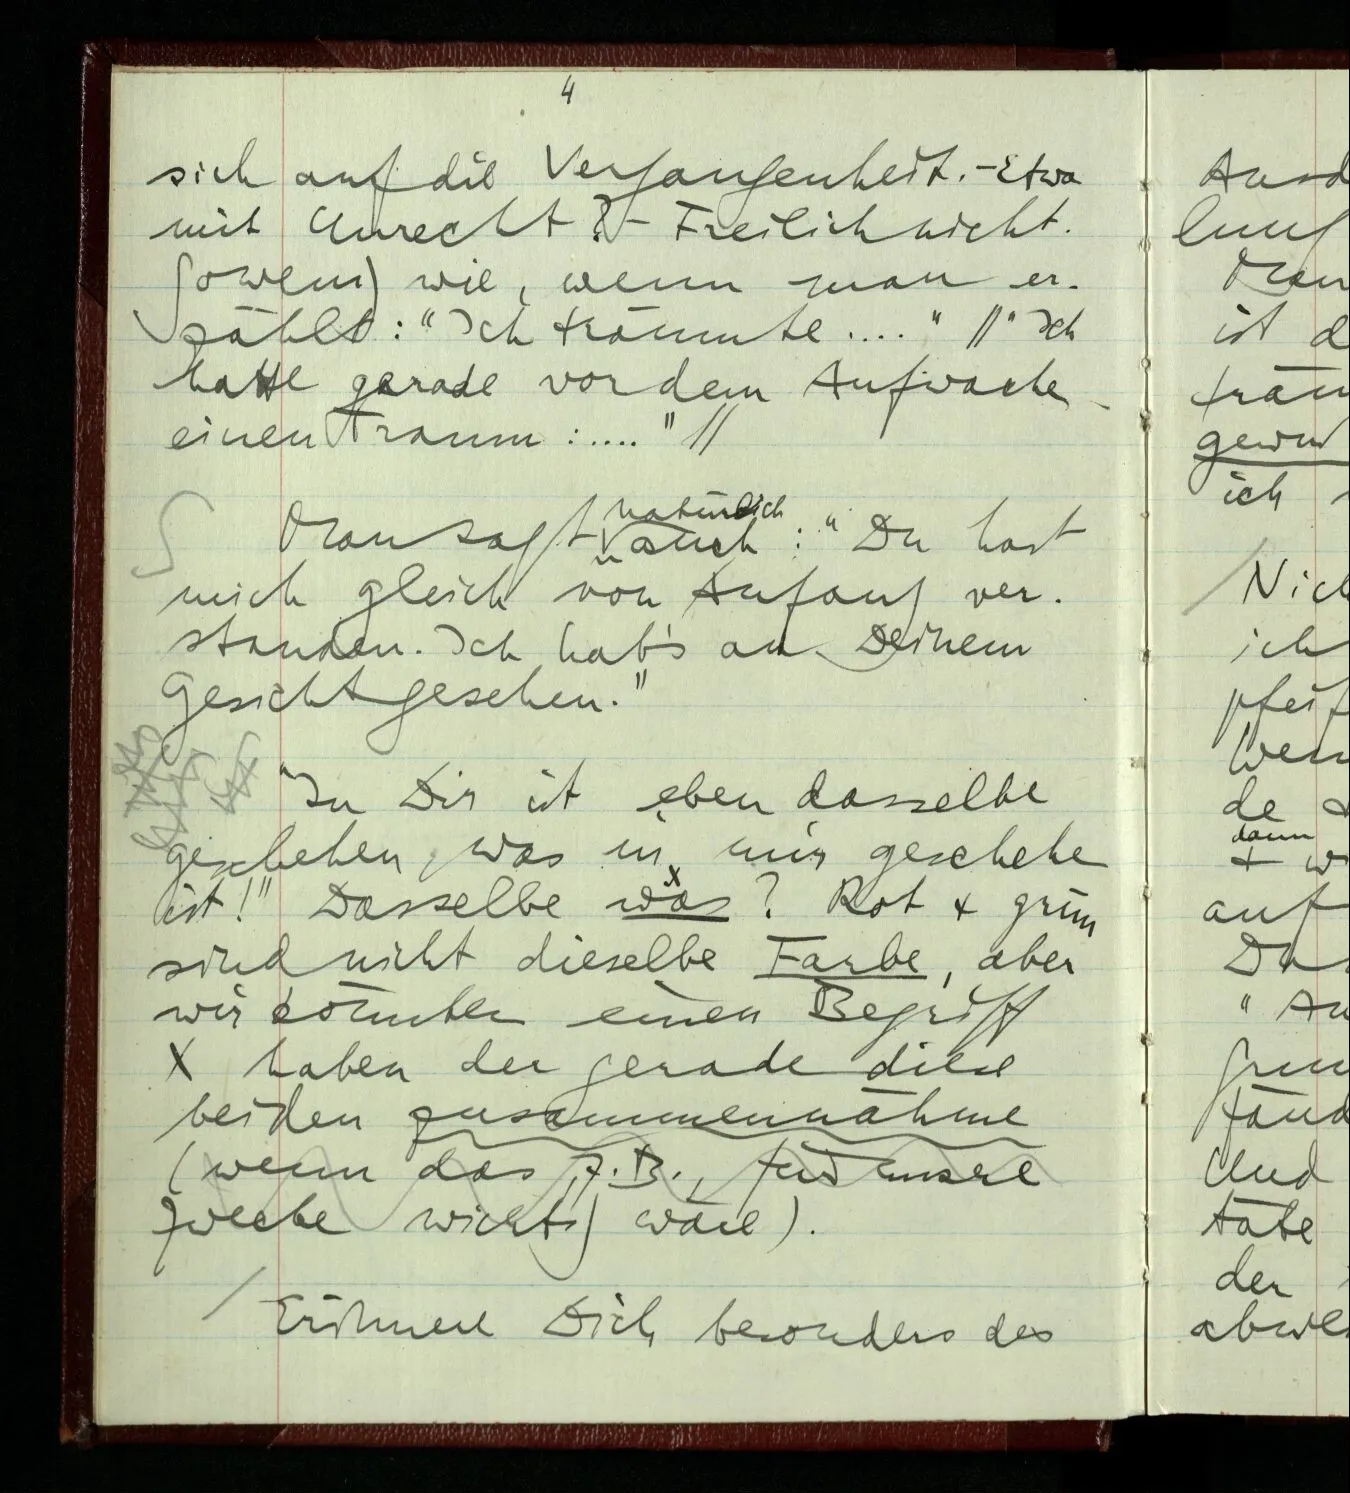 4
sich auf die Vergangenheit. – Etwa
mit Unrecht? – Freilich nicht.
Sowenig wie, wenn man er-
zählt: "Ich träumte ...." // "Ich
hatte gerade vor dem Aufwachen
einen Traum: ...." //
Man sagt natürlich auch: "Du hast
mich gleich von Anfang ver-
standen. Ich hab's an Deinem
Gesicht gesehen."
"In Dir ist eben dasselbe
geschehen, was in mir geschehen
ist!" Dasselbe was? Rot + grün
sind nicht dieselbe Farbe, aber
wir könnten einen Begriff
X haben der gerade diese
beiden zusammennähme
(wenn das, z.B., für unsere
Zwecke wichtig wäre).
/ Erinnere Dich besonders des
ist d
ich
/ Nich
ich
pfeif
Wen
de
dann
+ w
auf
Und
der